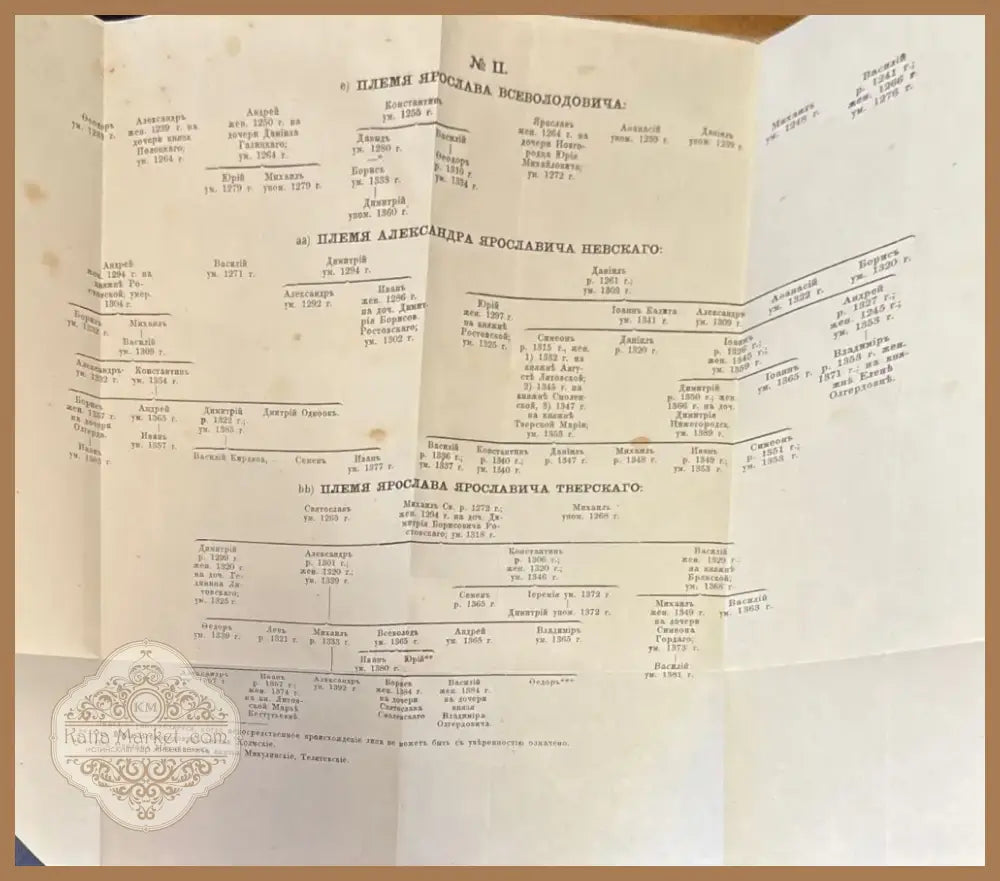 № II.
е) ПЛЕМЯ ЯРОСЛАВА ВСЕВОЛОДОВИЧА:
Ѳеодоръ
ум. 1233 г.
Александръ
жен. 1239 г. на
дочери князя
Полоцкаго;
ум. 1264 г.
Андрей
жен. 1250 г. на
дочери Даніила
Галицкаго;
ум. 1264 г.
Юрій
ум. 1279 г.
Михаилъ
упом. 1279 г.
Константинъ
ум. 1255 г.
Давидъ
ум. 1280 г.
—*
Борисъ
ум. 1333 г.
Димитрій
упом. 1360 г.
Василій
Ѳеодоръ
р. 1310 г.
ум. 1334 г.
Ярославъ
жен. 1264 г. на
дочери Новго-
родца Юрія
Михайловича;
ум. 1272 г.
Аѳанасій
упом. 1239 г.
Даніилъ
упом. 1239 г.
Михаилъ
ум. 1248 г.
Василій
р. 1241 г.;
жен. 1266 г.
ум. 1276 г.
аа) ПЛЕМЯ АЛЕКСАНДРА ЯРОСЛАВИЧА НЕВСКАГО:
Андрей
жен. 1294 г. на
княжнѣ Ро-
стовской; умер.
1304 г.
Борисъ
Михаилъ
Василій
ум. 1309 г.
Александръ
Константинъ
ум. 1354 г.
Борисъ
жен.
на дочери
Ольгерда.
Иванъ
Андрей
ум. 1365 г.
Иванъ
ум. 1357 г.
Димитрій
р. 1322 г.;
ум. 1383 г.
Дмитрій Одноок.
Василій Кирдяпа,
Семенъ
Иванъ
ум. 1377 г.
Василій
ум. 1271 г.
Димитрій
ум. 1294 г.
Александръ
ум. 1292 г.
Иванъ
жен. 1286 г.
на доч. Димит-
рія Борисов.
Ростовскаго;
ум. 1302 г.
Даніилъ
р. 1261 г.;
ум. 1303 г.
Юрій
жен. 1297 г.
на княжнѣ
Ростовской;
ум. 1325 г.
Іоаннъ Калита
ум. 1341 г.
Александръ
ум. 1309 г.
Аѳанасій
ум. 1322 г.
Борисъ
ум. 1320 г.
Симеонъ
р. 1315 г., жен.
1) 1332 г. на
княжнѣ Авгу-
стѣ Литовской;
2) 1345 г. на
княжнѣ Смолен-
ской, 3) 1347 г.
на княжнѣ
Тверской Маріи;
ум. 1353 г.
Даніилъ
р. 1320 г.
Іоаннъ
р. 1326 г.;
жен. 1345 г.;
ум. 1359 г.
Андрей
р. 1327 г.;
жен. 1245 г.;
ум. 1353 г.
Димитрій
р. 1350 г.; жен.
1366 г. на доч.
Димитрія
Нижегород.
ум. 1389 г.
Іоаннъ
ум. 1365 г.
Владиміръ
р. 1353 г. жен.
1371 г.; на кня-
жнѣ Еленѣ
Олгердовнѣ.
Василій
р. 1336 г.;
ум. 1337 г.
Константинъ
р. 1340 г.;
ум. 1340 г.
Даніилъ
р. 1347 г.
Михаилъ
р. 1348 г.
Иванъ
р. 1349 г.;
ум. 1353 г.
Симеонъ
р. 1351 г.;
ум. 1353 г.
bb) ПЛЕМЯ ЯРОСЛАВА ЯРОСЛАВИЧА ТВЕРСКАГО:
Святославъ
ум. 1265 г.
Михаилъ Св. р. 1272 г.;
жен. 1294 г. на доч. Ди-
митрія Борисовича Ро-
стовскаго; ум. 1318 г.
Михаилъ
упом. 1268 г.
Димитрій
р. 1299 г.
жен. 1320 г.
на доч. Ге-
димина Ли-
товскаго;
ум. 1325 г.
Александръ
р. 1301 г.;
жен. 1320 г.;
ум. 1339 г.
Константинъ
р. 1306 г.;
жен. 1320 г.;
ум. 1346 г.
Василій
жен. 1329 г.;
на княжнѣ
Брянской;
ум. 1368 г.
Семенъ
р. 1365 г.
Іеремія ум. 1372 г.
Димитрій упом. 1372 г.
Михаилъ
жен. 1349 г.
на дочери
Симеона
Гордаго;
ум. 1373 г.
Василій
ум. 1363 г.
Василій
ум. 1381 г.
Ѳедоръ
ум. 1339 г.
Левъ
р. 1321 г.
Михаилъ
р. 1333 г.
Всеволодъ
ум. 1365 г.
Андрей
ум. 1365 г.
Владиміръ
ум. 1365 г.
Иванъ
ум. 1380 г.
Юрій**
Александръ
Иванъ
р. 1357 г.;
жен. 1374 г.
на кн. Литов-
ской Марьѣ
Кестутьевнѣ.
Александръ
ум. 1392 г.
Борисъ
жен. 1384 г.
на дочери
Святослава
Смоленскаго
Василій
жен. 1384 г.
на дочери
князя
Владиміра
Олгердовича.
Ѳедоръ***
непосредственное происхожденіе лица не можетъ быть съ увѣренностью означено.
Холмскіе.
Микулинскіе, Телятевскіе.
KM
Katia Market .com